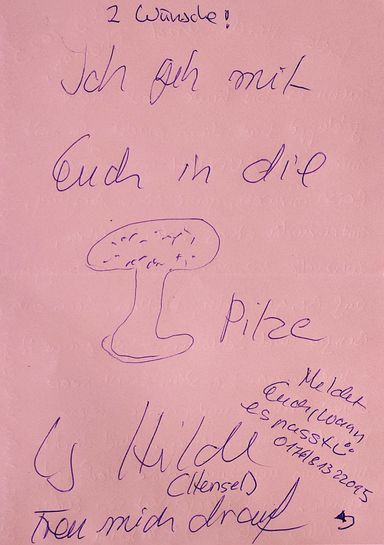 2 Wünsche!
Ich geh mit
Euch in die
Pilze
Meldet
Euch, wann
es passt
Hilde
(Hensel)
Freu mich drauf